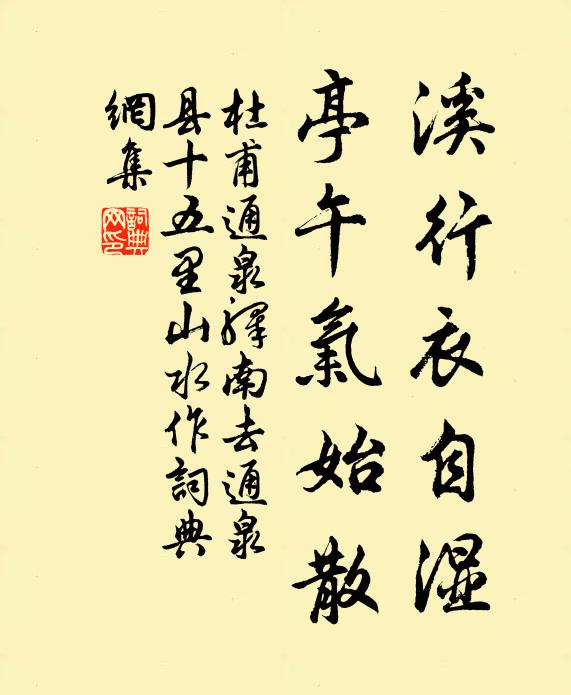 溪行衣自濕
亭午氣始散
杜甫通泉驛南去通泉
县十五里山水作詞典
網集
詞典
网印